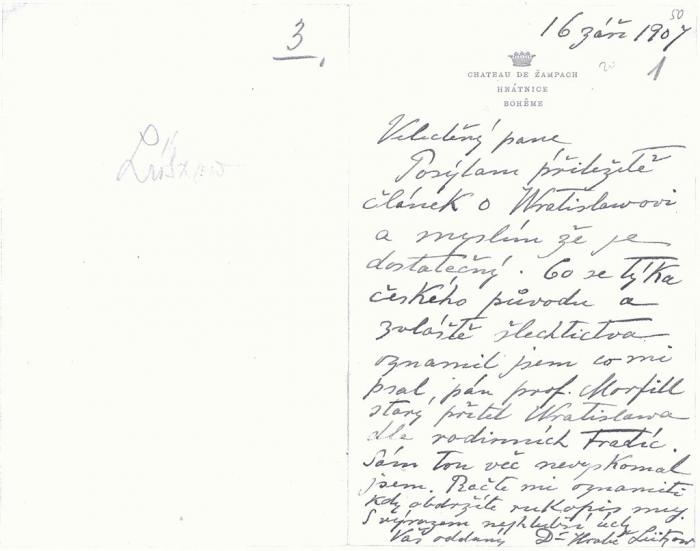 3
Lützow
50
16 září 1907
20
1
CHATEAU DE ŽAMPACH
HNÁTNICE
BOHÊME
Velectěný pane
Posýlam přiležitě
článek o Wratislawovi
a myslím že je
dostatečný. Co se týka
českého původu a
zvláště šlechtictva
oznamil jsem co mi
psal, pán prof. Morfill
starý přítel Wratislawa
dle rodinních Tradić.
Sám tou věc nevyskomal
jsem. Račte mi oznamiti
kdy obdržíte rukopis muj
S výrazem nejhlubší úcty
Váš oddaný Dr Hrabě Lützow